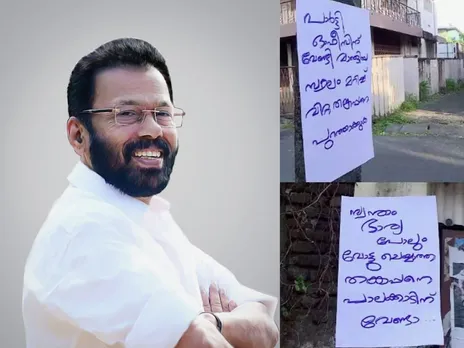 പാർട്ടി
ഓഫീസിന്
വേണ്ടി വാങ്ങിയ
സ്ഥലം മറിച്ച്
വിറ്റ തങ്കപ്പനെ
പുറത്താക്കുക
സ്വന്തം
ഭാര്യ
പോലും
വോട്ടു ചെയ്യാത്ത
തങ്കപ്പനെ
പാലക്കാടിന്
വേണ്ടാ ...